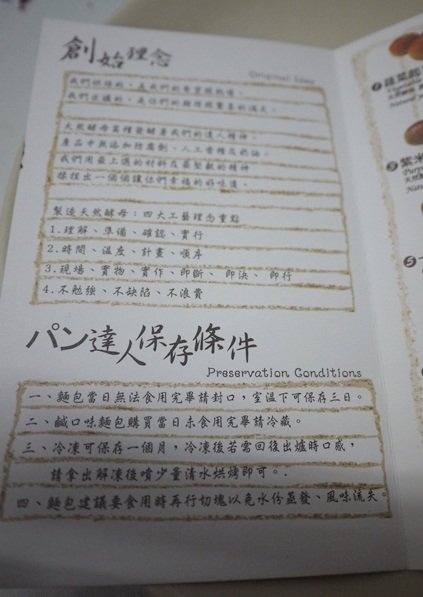 創始理念
Original Idea
我們烘焙的，是我們的希望與熱情。
天然酵母萬裡發酵著我們的達人精神。
產品中無添加防腐劑、人工香精及奶油。
我們用最上選的材料及最堅毅的精神
揉捏出一個個讓你們幸福的好味道。
製造天然酵母：四大工藝理念重點
1.理解、準備、確認、實行
2.時間、溫度、計畫、順序
3.現場、實物、實作、即斷、即決、即行
4.不勉強、不缺陷、不浪費
パン達人保存條件
Preservation Conditions
一、麵包當日無法食用完畢請封口，室溫下可保存三日。
二、鹹口味麵包購買當日未食用完畢請冷藏。
三、冷凍可保存一個月，冷凍後若需回復出爐時口感，
請拿出解凍後噴少量清水烘烤即可。
四、麵包建議要食用時再行切塊以免水份蒸發、風味流失。
蔬菜
紫米